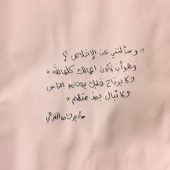 " وسألتني عن الإخلاص ؟
وهو أن تكون أعمالك كلها لله "
ولا يرتاح قلبك بمحامد الناس
ولا تبالي بمذمتهم "
أبو حامد الغزالي